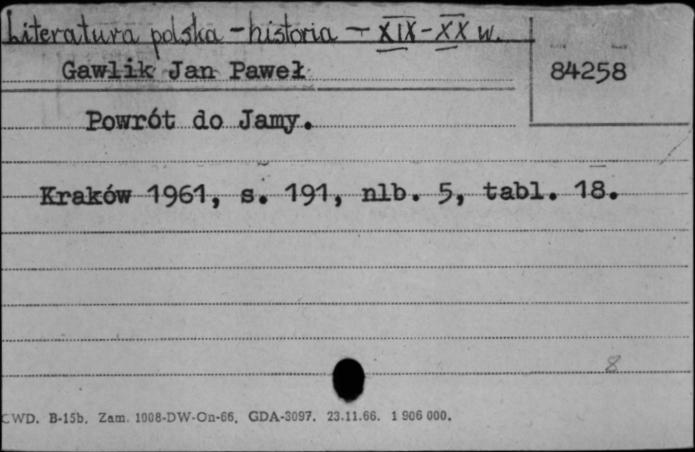 Literatura polska - historia - XIX-XX w.
Gawlik Jan Paweł
84258
Powrót do Jamy.
Kraków 1961, s. 191, nlb. 5, tabl. 18.
8
CWD. B-15b. Zam. 1008-DW-On-66. GDA-3097. 23.11.66. 1 906 000.